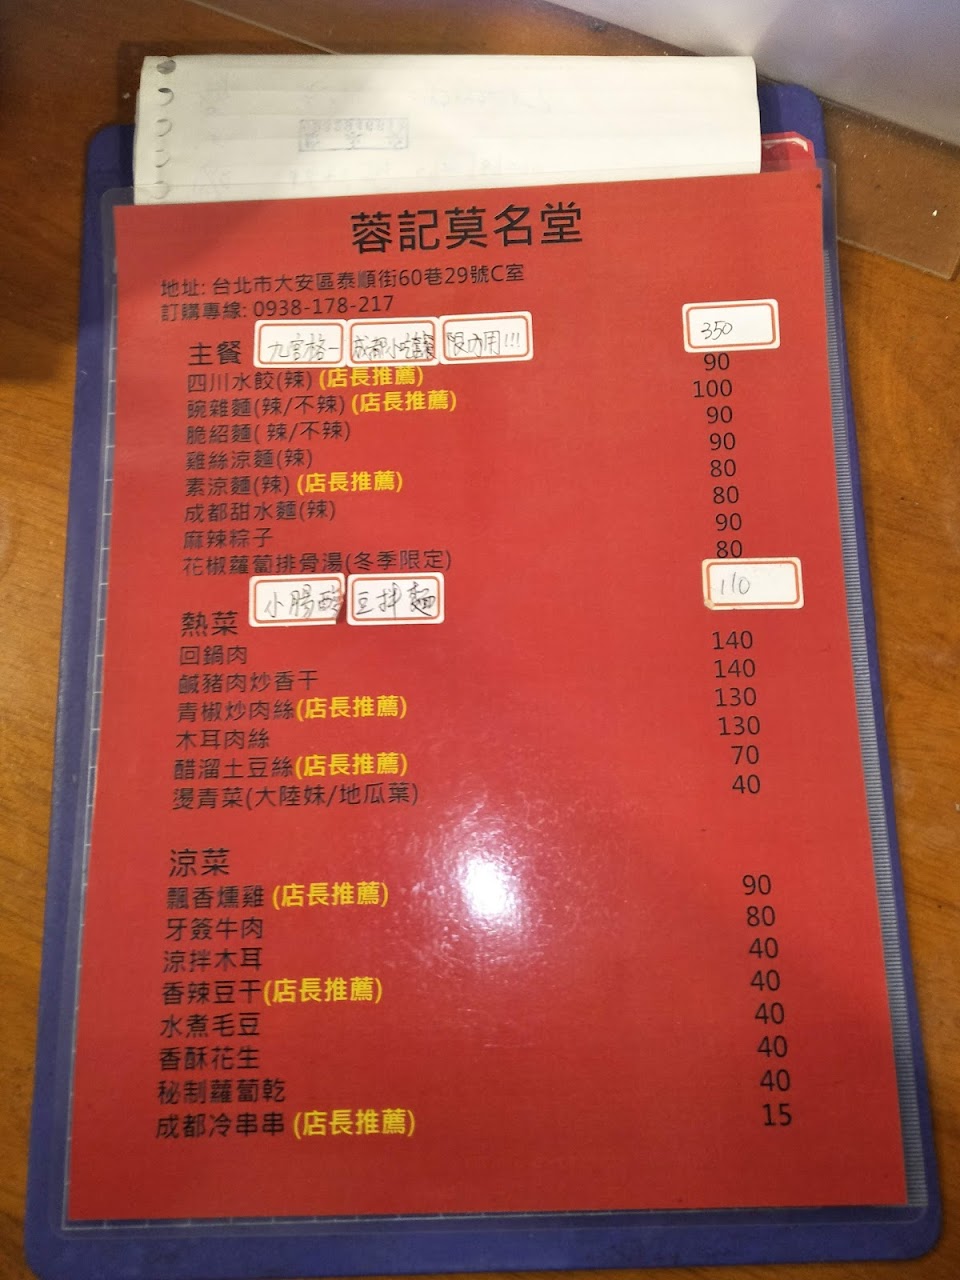 蓉記莫名堂
地址: 台北市大安區泰順街60巷29號C室
訂購專線: 0938-178-217
主餐 九宮格- 成都小吃套餐 限內用!!! 350
四川水餃(辣) (店長推薦) 90
豌雜麵(辣/不辣) (店長推薦) 100
脆紹麵( 辣/不辣) 90
雞絲涼麵(辣) 90
素涼麵(辣) (店長推薦) 80
成都甜水麵(辣) 80
麻辣粽子 90
花椒蘿蔔排骨湯(冬季限定) 80
熱菜 小腸酸 豆拌麵 110
回鍋肉 140
鹹豬肉炒香干 140
青椒炒肉絲(店長推薦) 130
木耳肉絲 130
醋溜土豆絲(店長推薦) 70
燙青菜(大陸妹/地瓜葉) 40
涼菜
飄香燻雞 (店長推薦) 90
牙簽牛肉 80
涼拌木耳 40
香辣豆干(店長推薦) 40
水煮毛豆 40
香酥花生 40
秘制蘿蔔乾 40
成都冷串串 (店長推薦) 15